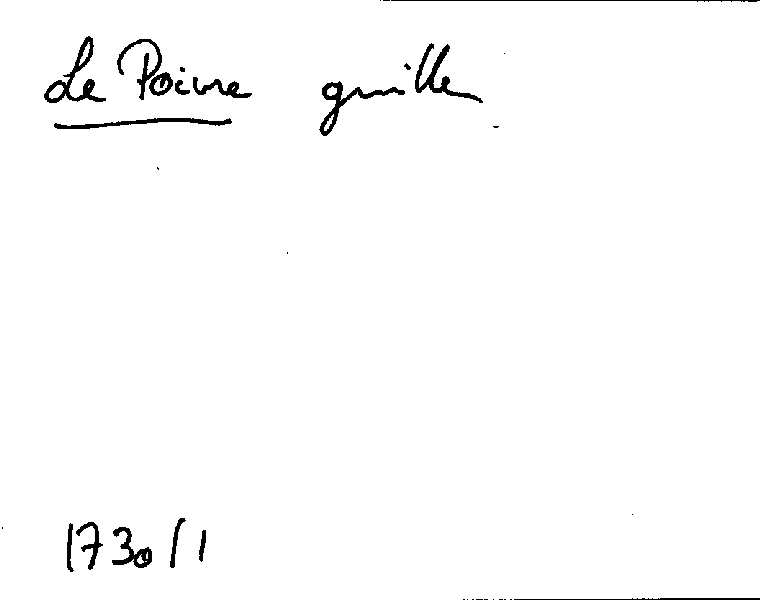 Le Poivre guille
1730/1